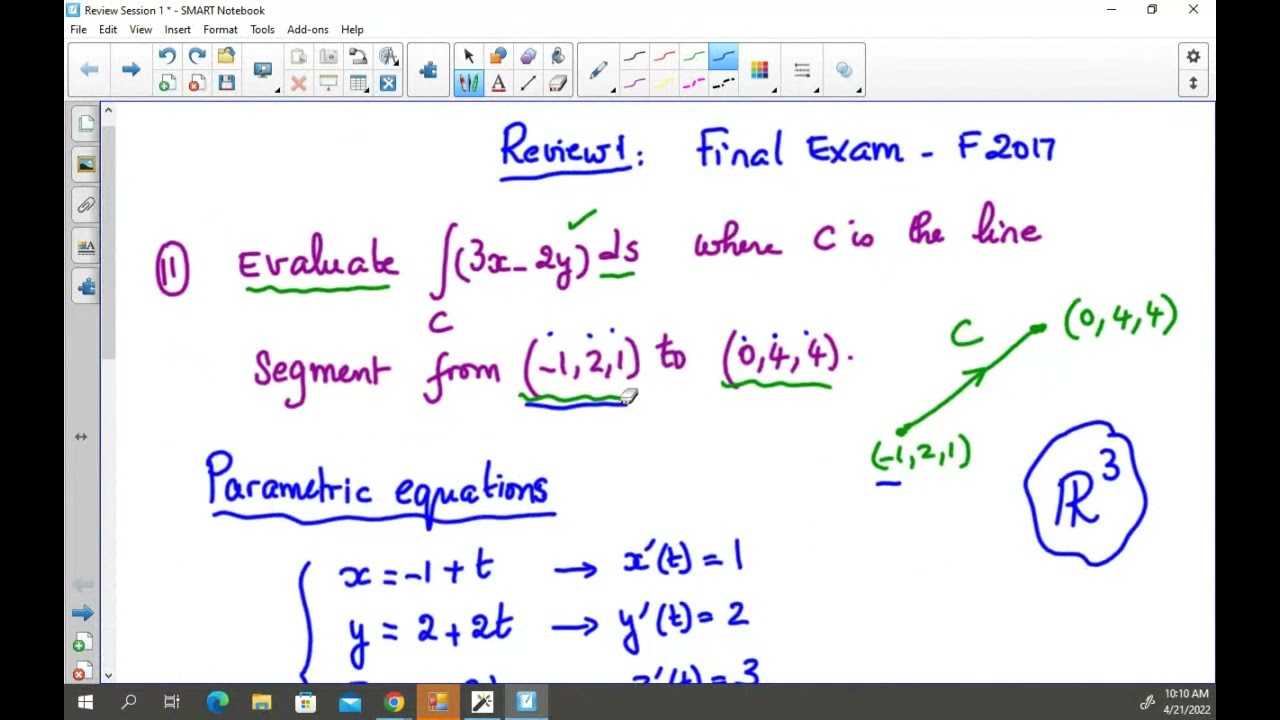 Review Session 1 * - SMART Notebook
File Edit View Insert Format Tools Add-ons Help
Review1: Final Exam - F2017
11 Evaluate ∫(3x-2y) ds where C is the line
C
Segment from (-1,2,1) to (0,4,4).
C
(0,4,4)
(-1,2,1)
ℝ³
Parametric equations
x = -1 + t → x'(t) = 1
y = 2 + 2t → y'(t) = 2
z'(t) = 3
10:10 AM
4/21/2022